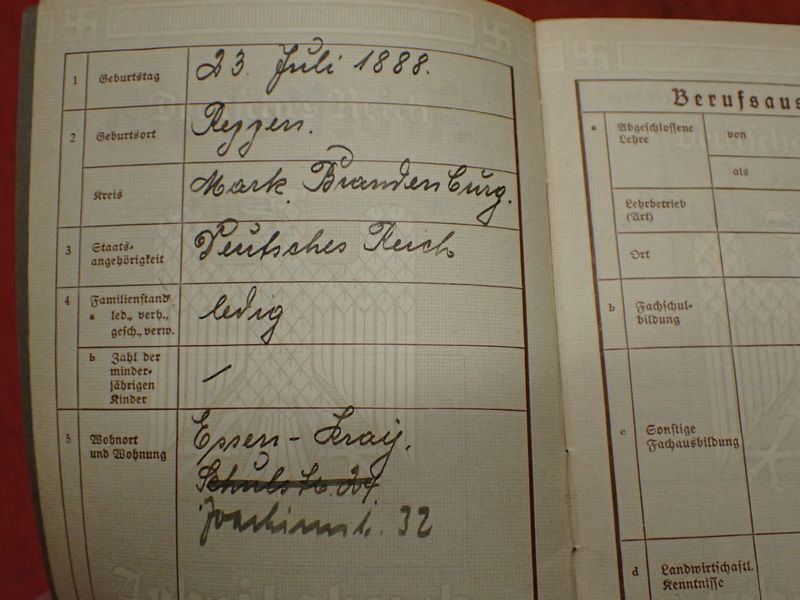 1 Geburtstag 23. Juli 1888.
2 Geburtsort Reppen.
Kreis Mark. Brandenburg.
3 Staats-
angehörigkeit Deutsches Reich
4 Familienstand
a led., verh.,
gesch., verw. ledig
b Zahl der
minder-
jährigen
Kinder /
5 Wohnort
und Wohnung Essen-Kray.
Schulstr. 24.
Joachimstr. 32
Berufsaus
a Abgeschlossene
Lehre
von
als
Lehrbetrieb
(Art)
Ort
b Fachschul-
bildung
c Sonstige
Fachausbildung
d Landwirtschaftl.
Kenntnisse